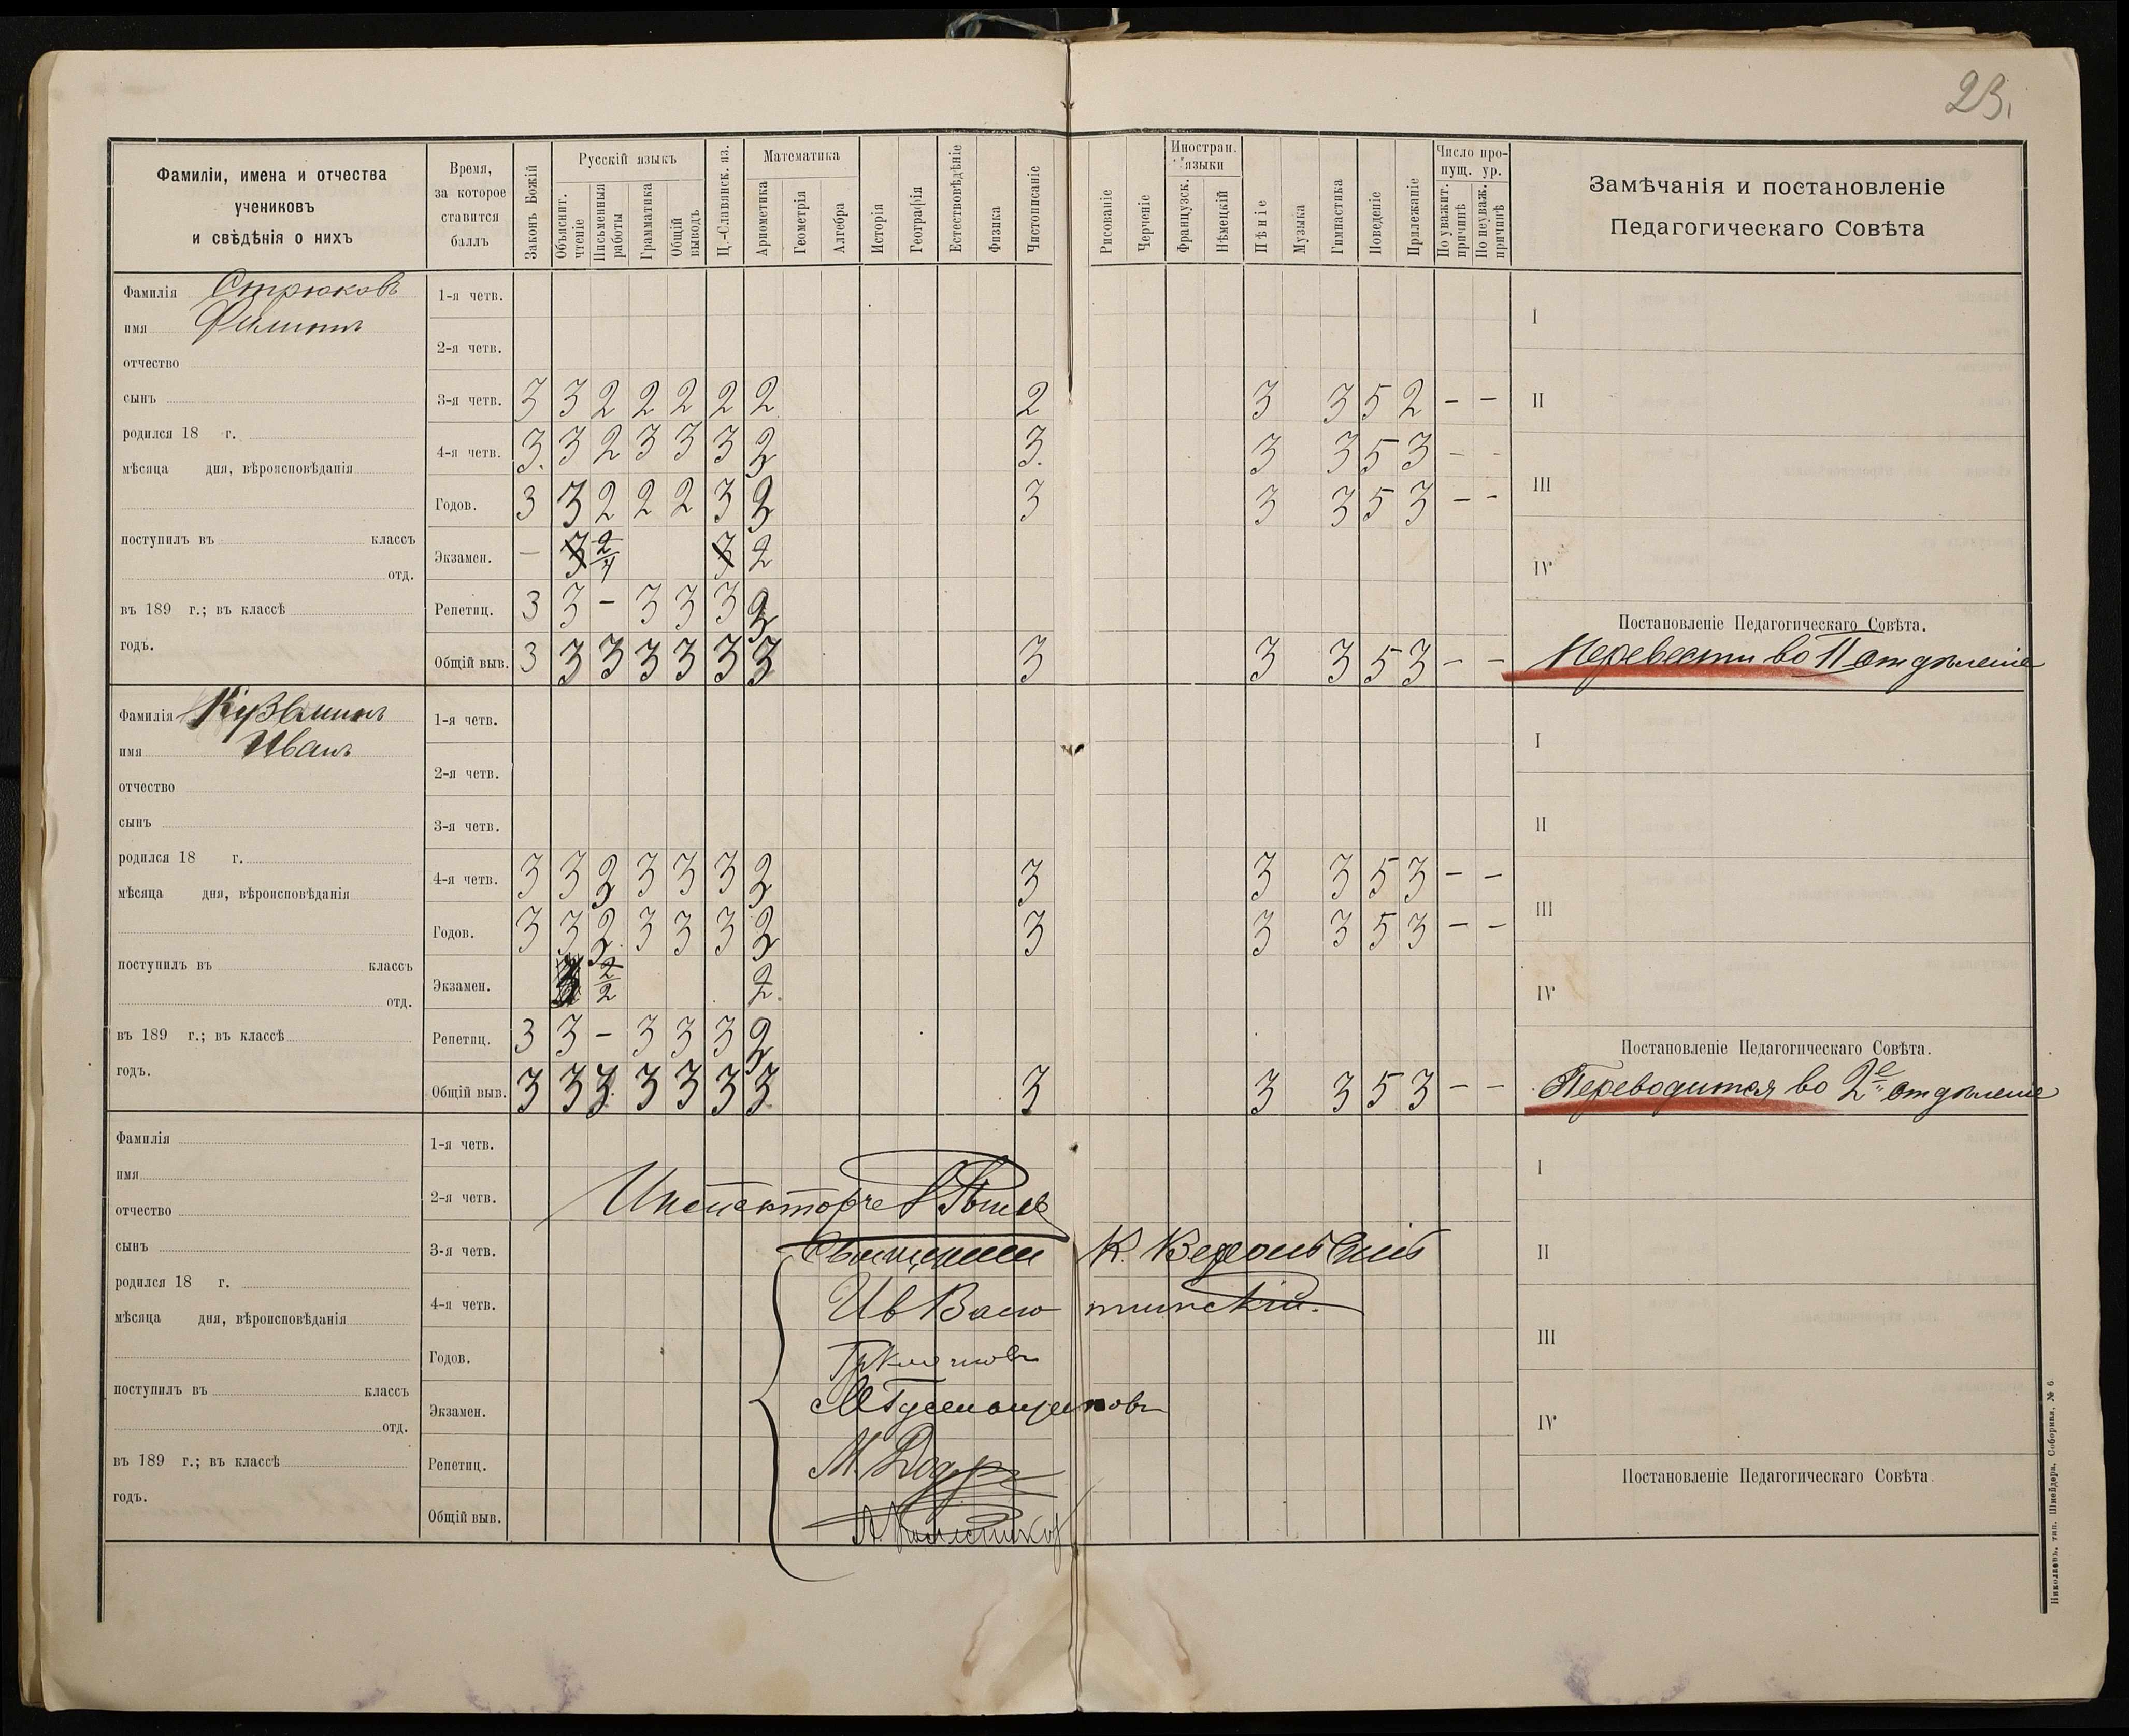 23.
Фамиліи, имена и отчества
учениковъ
и свѣдѣнія о нихъ
Время,
за которое
ставится
баллъ
Законъ Божій
Русскій языкъ
Объяснит. чтеніе
Письменныя работы
Грамматика
Общій выводъ
Ц.-Славянск. яз.
Математика
Арифметика
Геометрія
Алгебра
Исторія
Географія
Естествовѣдѣніе
Физика
Чистописаніе
Рисованіе
Черченіе
Иностран. языки
Французск.
Нѣмецкій
Пѣніе
Музыка
Гимнастика
Поведеніе
Прилежаніе
Число про-
пущ. ур.
По уважит. причинѣ
По неуваж. причинѣ
Замѣчанія и постановленіе
Педагогическаго Совѣта
Фамилія Стрюковъ
имя Филиппъ
отчество
сынъ
родился 18 г.
мѣсяца дня, вѣроисповѣданія
поступилъ въ классъ
отд.
въ 189 г.; въ классѣ
годъ.
1-я четв.
2-я четв.
3-я четв. 3 3 2 2 2 2 2 2 3 3 5 2 – –
4-я четв. 3. 3 2 3 3 3 2 3. 3 3 5 3 – –
Годов. 3 3 2 2 2 3 3 3 3 5 3 – –
Экзамен. – 3 2 3 2
Репетиц. 3 3 – 3 3 3
Общій выв. 3 3 3 3 3 3 3 3 3 3 5 3 – –
I
II
III
IV
Постановленіе Педагогическаго Совѣта.
Перевести во II отдѣленіе
Фамилія Кузьминъ
имя Иванъ
отчество
сынъ
родился 18 г.
мѣсяца дня, вѣроисповѣданія
поступилъ въ классъ
отд.
въ 189 г.; въ классѣ
годъ.
1-я четв.
2-я четв.
3-я четв.
4-я четв. 3 3 3 3 3 3 3 3 5 3 – –
Годов. 3 3 3 3 3 3 3 3 5 3 – –
Экзамен. 3 2/2 2.
Репетиц. 3 3 – 3 3 3
Общій выв. 3 3 3 3 3 3 3 3 3 3 5 3 – –
I
II
III
IV
Постановленіе Педагогическаго Совѣта.
Переводится во 2е отдѣленіе
Фамилія
имя
отчество
сынъ
родился 18 г.
мѣсяца дня, вѣроисповѣданія
поступилъ въ классъ
отд.
въ 189 г.; въ классѣ
годъ.
1-я четв.
2-я четв.
3-я четв.
4-я четв.
Годов.
Экзамен.
Репетиц.
Общій выв.
К.
Ив
М.
I
II
III
IV
Постановленіе Педагогическаго Совѣта.
Николаевъ, тип. Шнейдера, Соборная, № 6